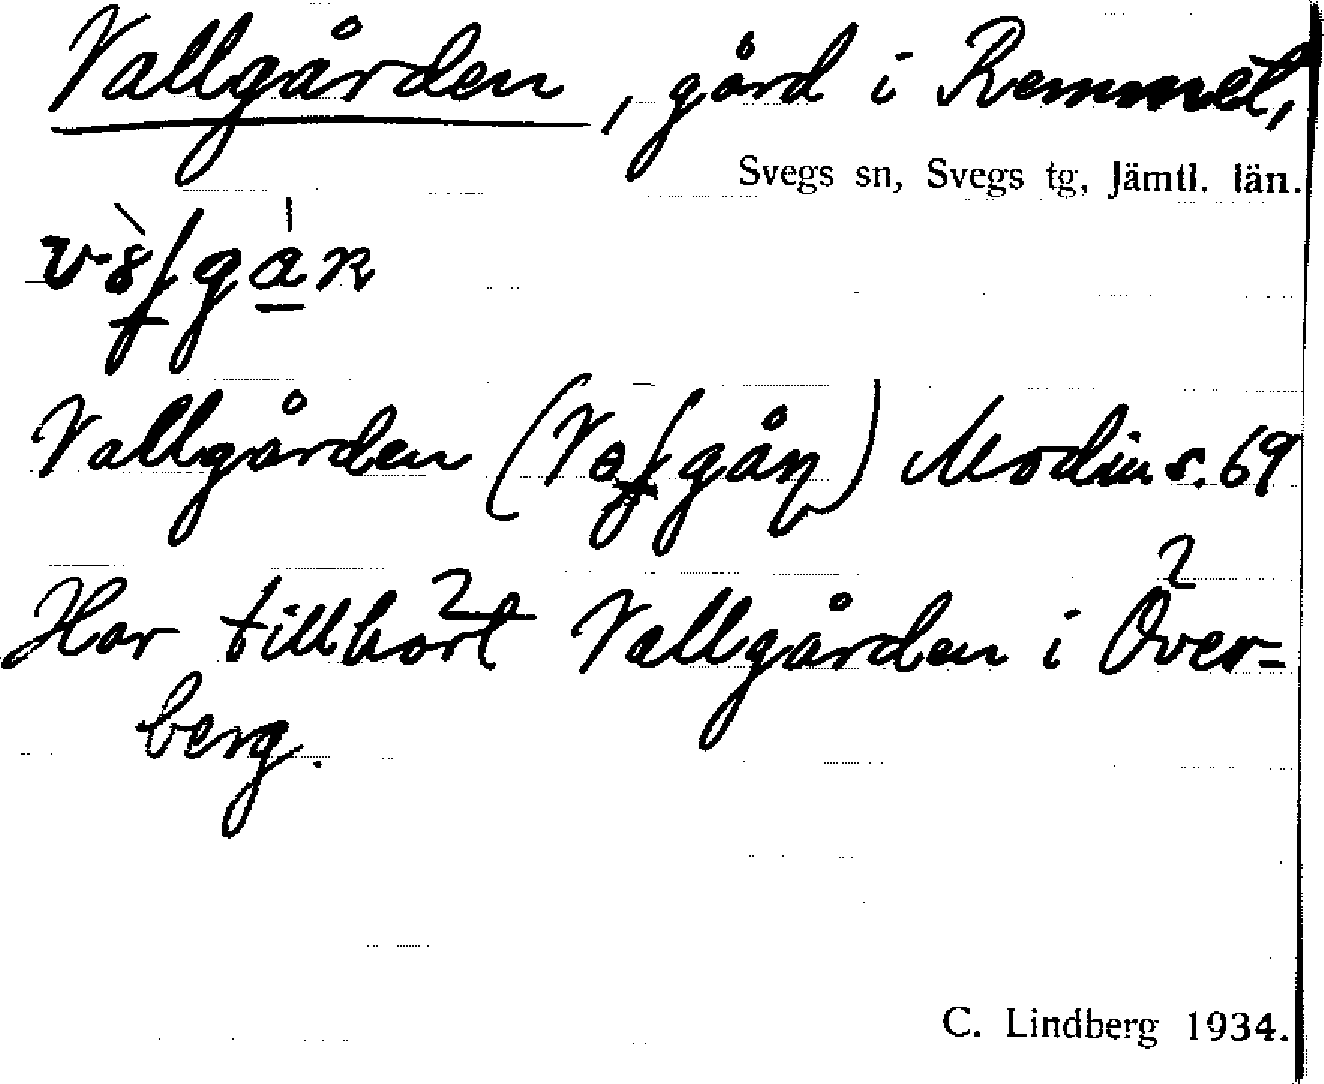 Vallgården, gård i Remmet,
Svegs sn, Svegs tg, Jämtl. län.
Vallgården Modin s. 69
Har tillhört Vallgården i Över-
berg.
C. Lindberg 1934.